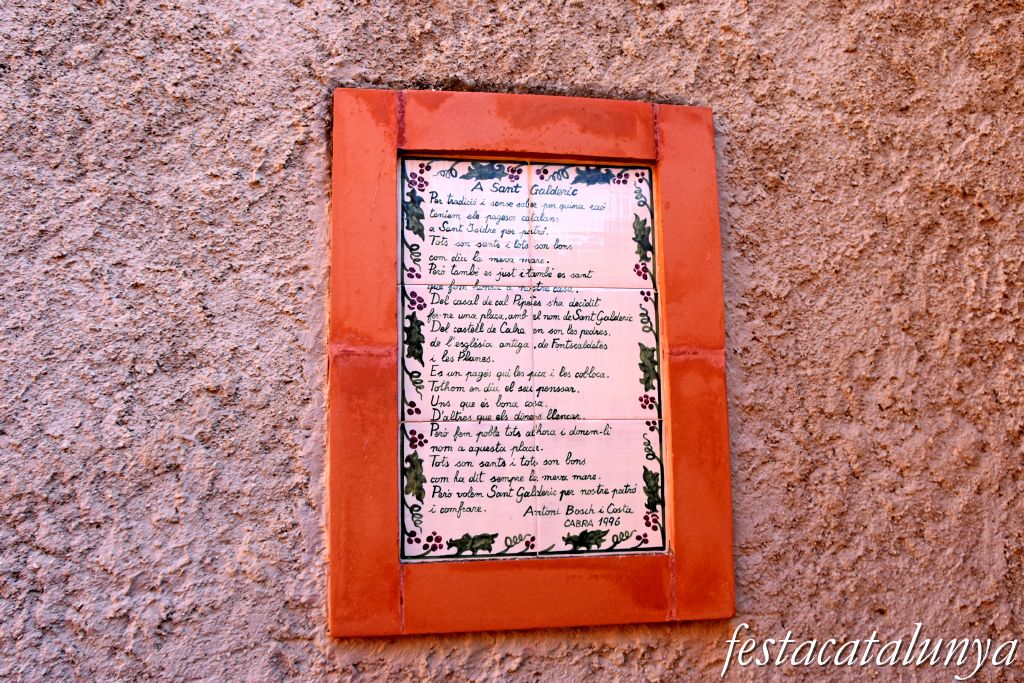 A Sant Galderic
Per tradició i sense saber per quina raó
teniem els pagesos catalans
a Sant Isidre per patró.
Tots son sants i tots son bons
com diu la meva mare.
Però també es just i també es sant
que fem honra a nostre casa.
Del casal de cal Pipetes s'ha decidit
fer-ne una plaça, amb el nom de Sant Galderic
Del castell de Cabra en son les pedres,
de l'església antiga, de Fontscaldetes
i les Planes.
Es un pagès qui les pica i les col·loca.
Tothom en diu el seu penssar.
Uns que és bona cosa.
D'altres que els diners llençar.
Però fem poble tots al'hora i donem-li
nom a aquesta plaça.
Tots son sants i tots son bons
com ha dit sempre la meva mare.
Però volem Sant Galderic per nostre patró
i comfrare.
Antoni Bosch i Costa
CABRA 1996
festacatalunya